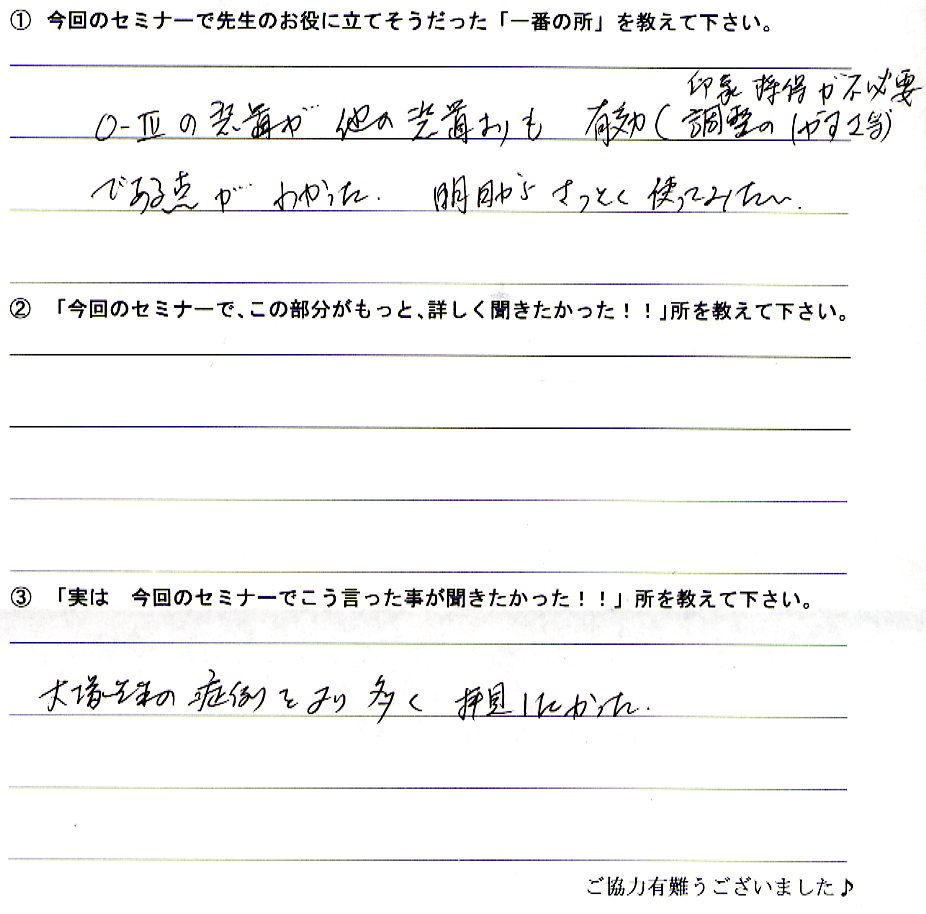 ① 今回のセミナーで先生のお役に立てそうだった「一番の所」を教えて下さい。
印象採得が不必要
O-Ⅲの装置が他の装置よりも 有効(調整のしやすさ等)
である点が わかった. 明日からさっそく使ってみたい.
② 「今回のセミナーで、この部分がもっと、詳しく聞きたかった！！」所を教えて下さい。
③ 「実は 今回のセミナーでこう言った事が聞きたかった！！」所を教えて下さい。
大塚先生の症例をより多く 拝見したかった.
ご協力有難うございました♪